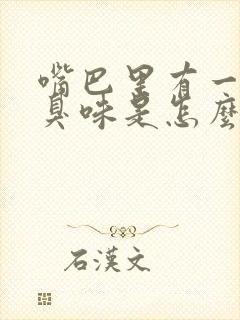 嘴巴里有一
臭味是怎麼
石漢文